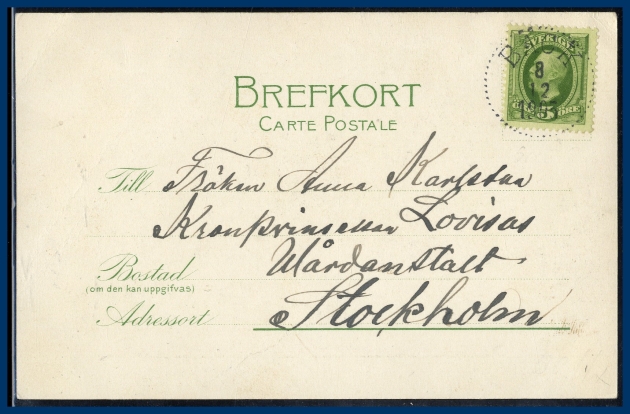 SVERIGE
8
12
1903
5 ÖRE
BREFKORT
CARTE POSTALE
Till Fröken Anna Karlstaa
Kronprinsessan Lovisas
Wårdanstalt
Bostad
(om den kan uppgifvas)
Adressort Stockholm